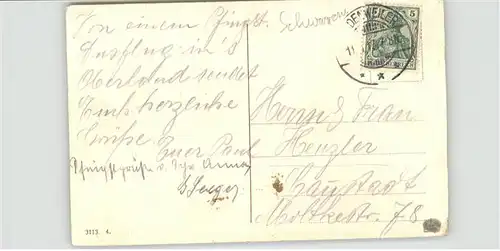 Von einem Pfingst-
Ausflug in's
Oberland sendet
Euch herzliche
Grüße Euer Paul
Pfingstgrüße v. Anna
Schwarzen
5
Herrn & Frau
Henzler
Cannstadt
Moltkestr. 78
3113 4.